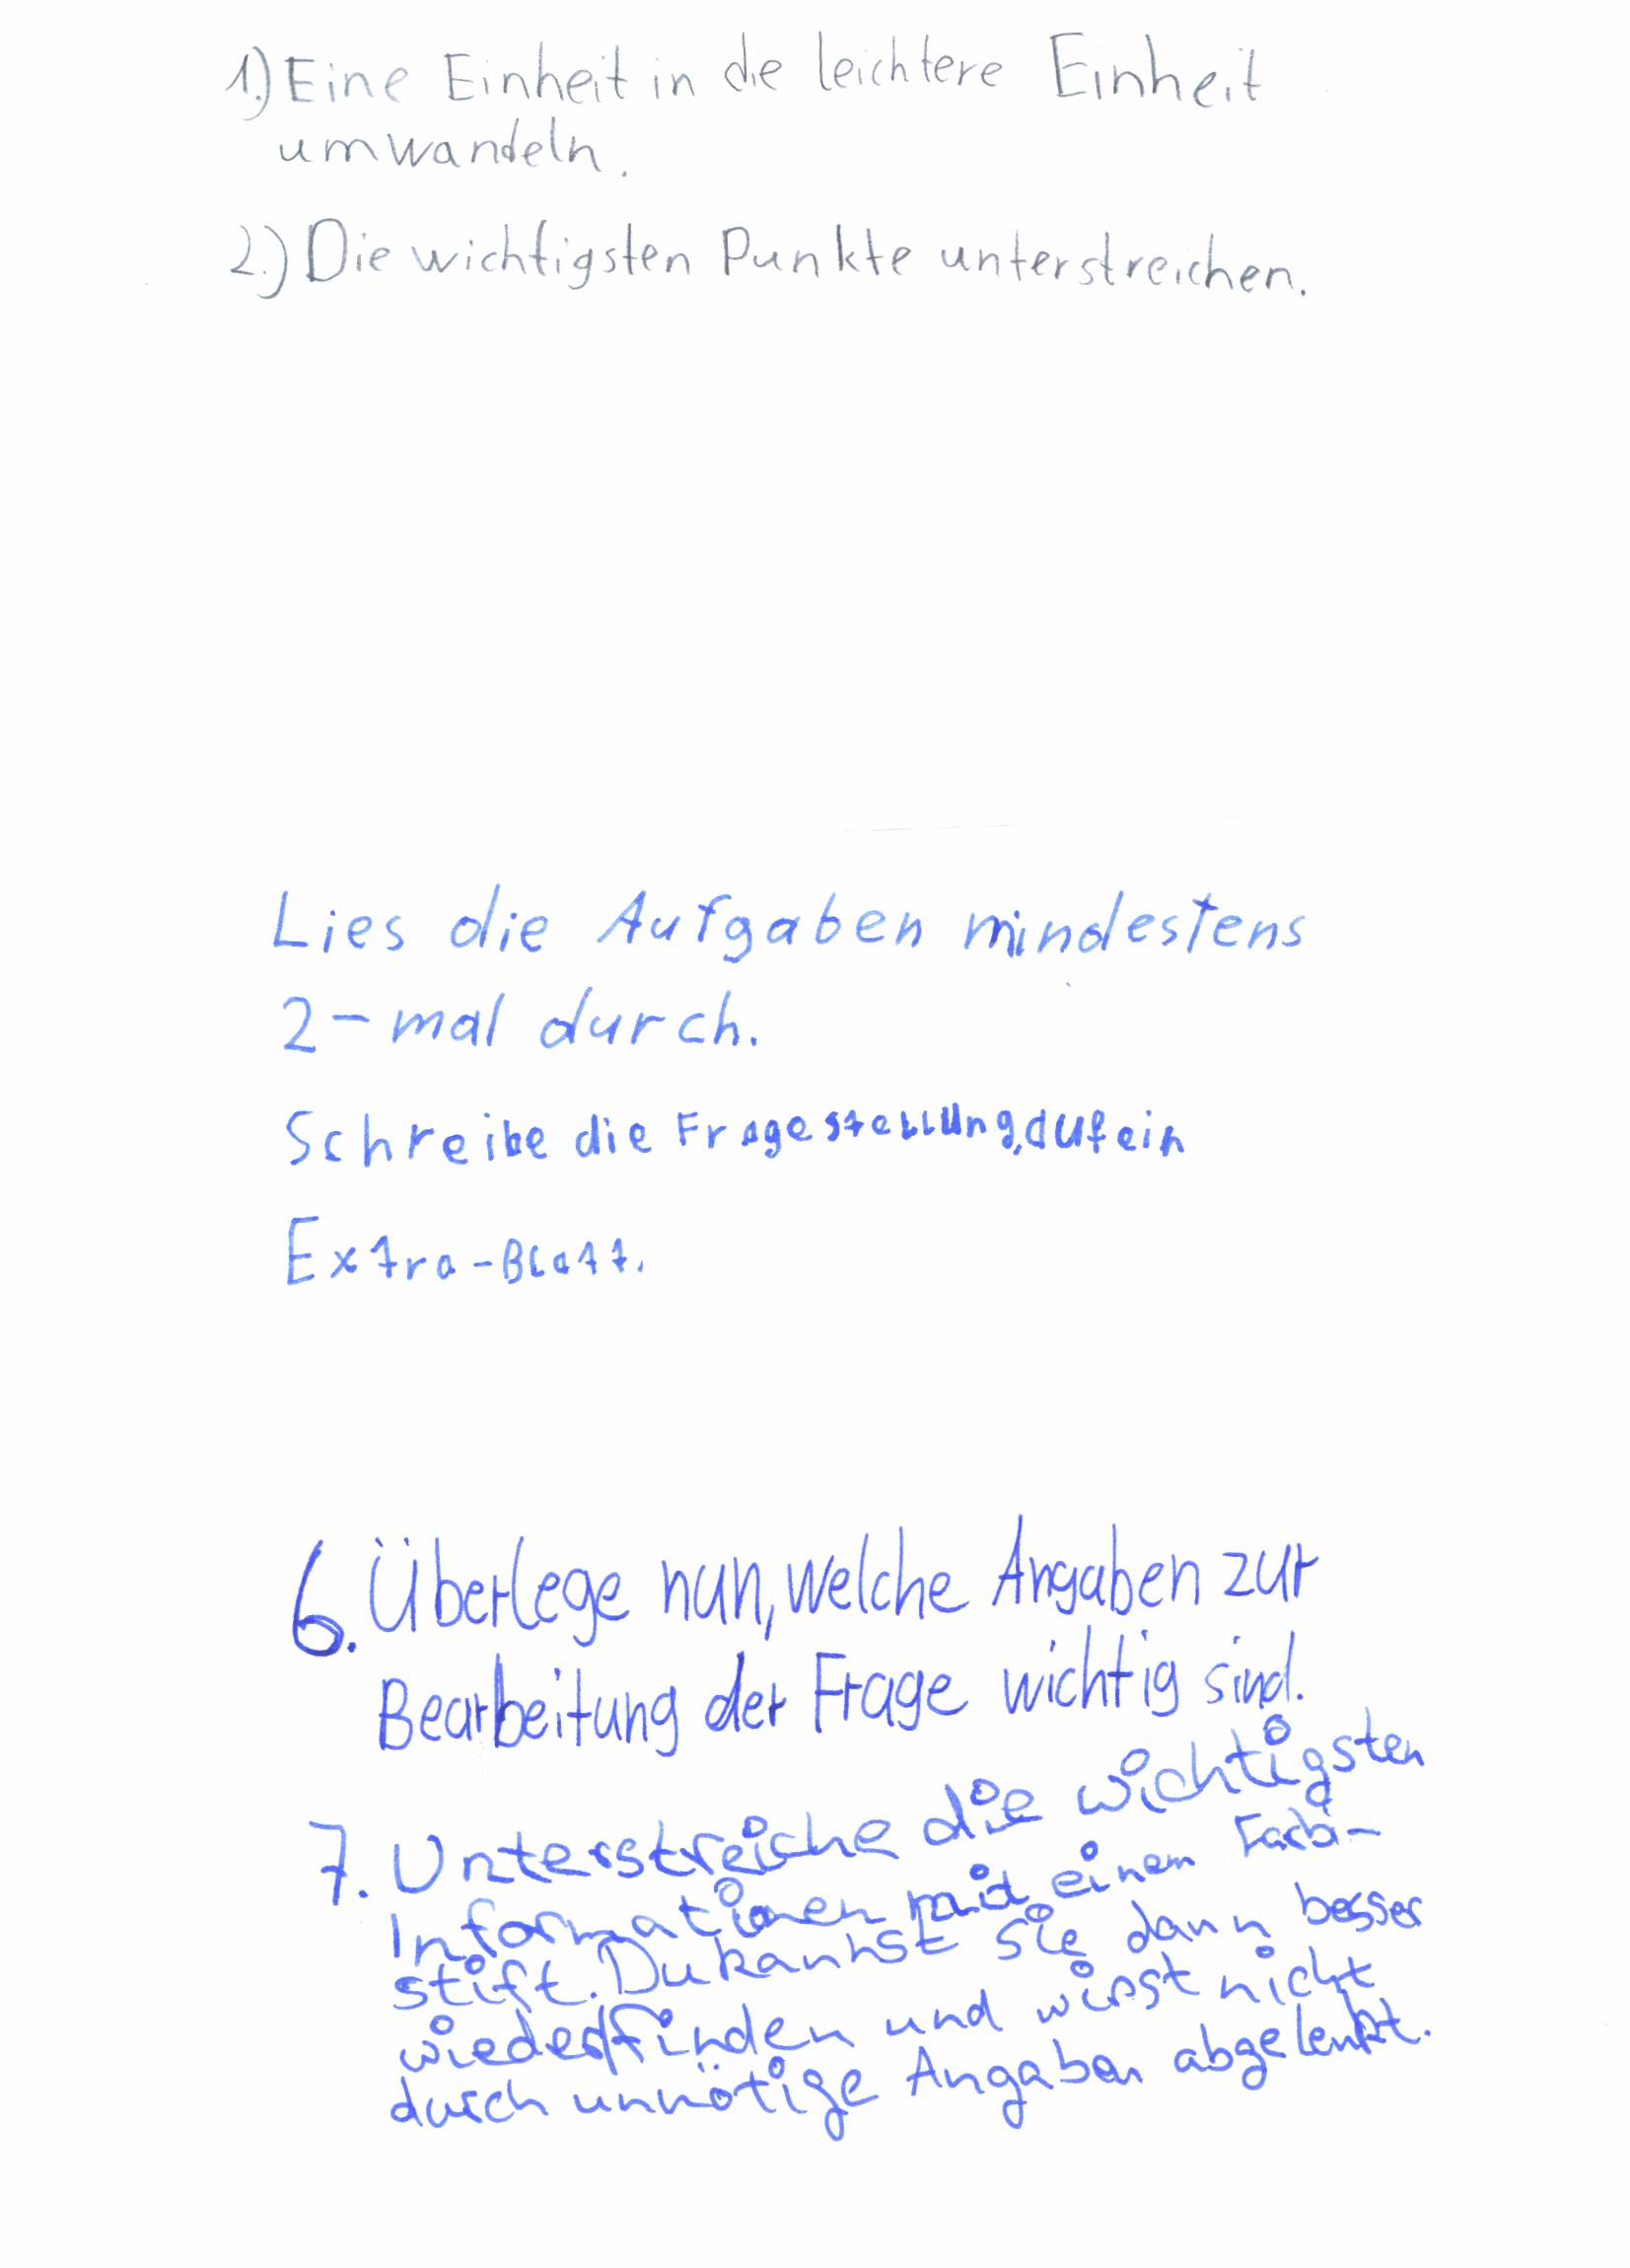 1.) Eine Einheit in die leichtere Einheit
umwandeln.
2.) Die wichtigsten Punkte unterstreichen.
Lies die Aufgaben mindestens
2-mal durch.
Schreibe die Fragestellung auf ein
Extra-Blatt.
6. Überlege nun, welche Angaben zur
Bearbeitung der Frage wichtig sind.
7. Unterstreiche die wichtigsten
Informationen mit einem Farb-
stift. Du kannst sie dann besser
wiederfinden und wirst nicht
durch unnötige Angaben abgelenkt.